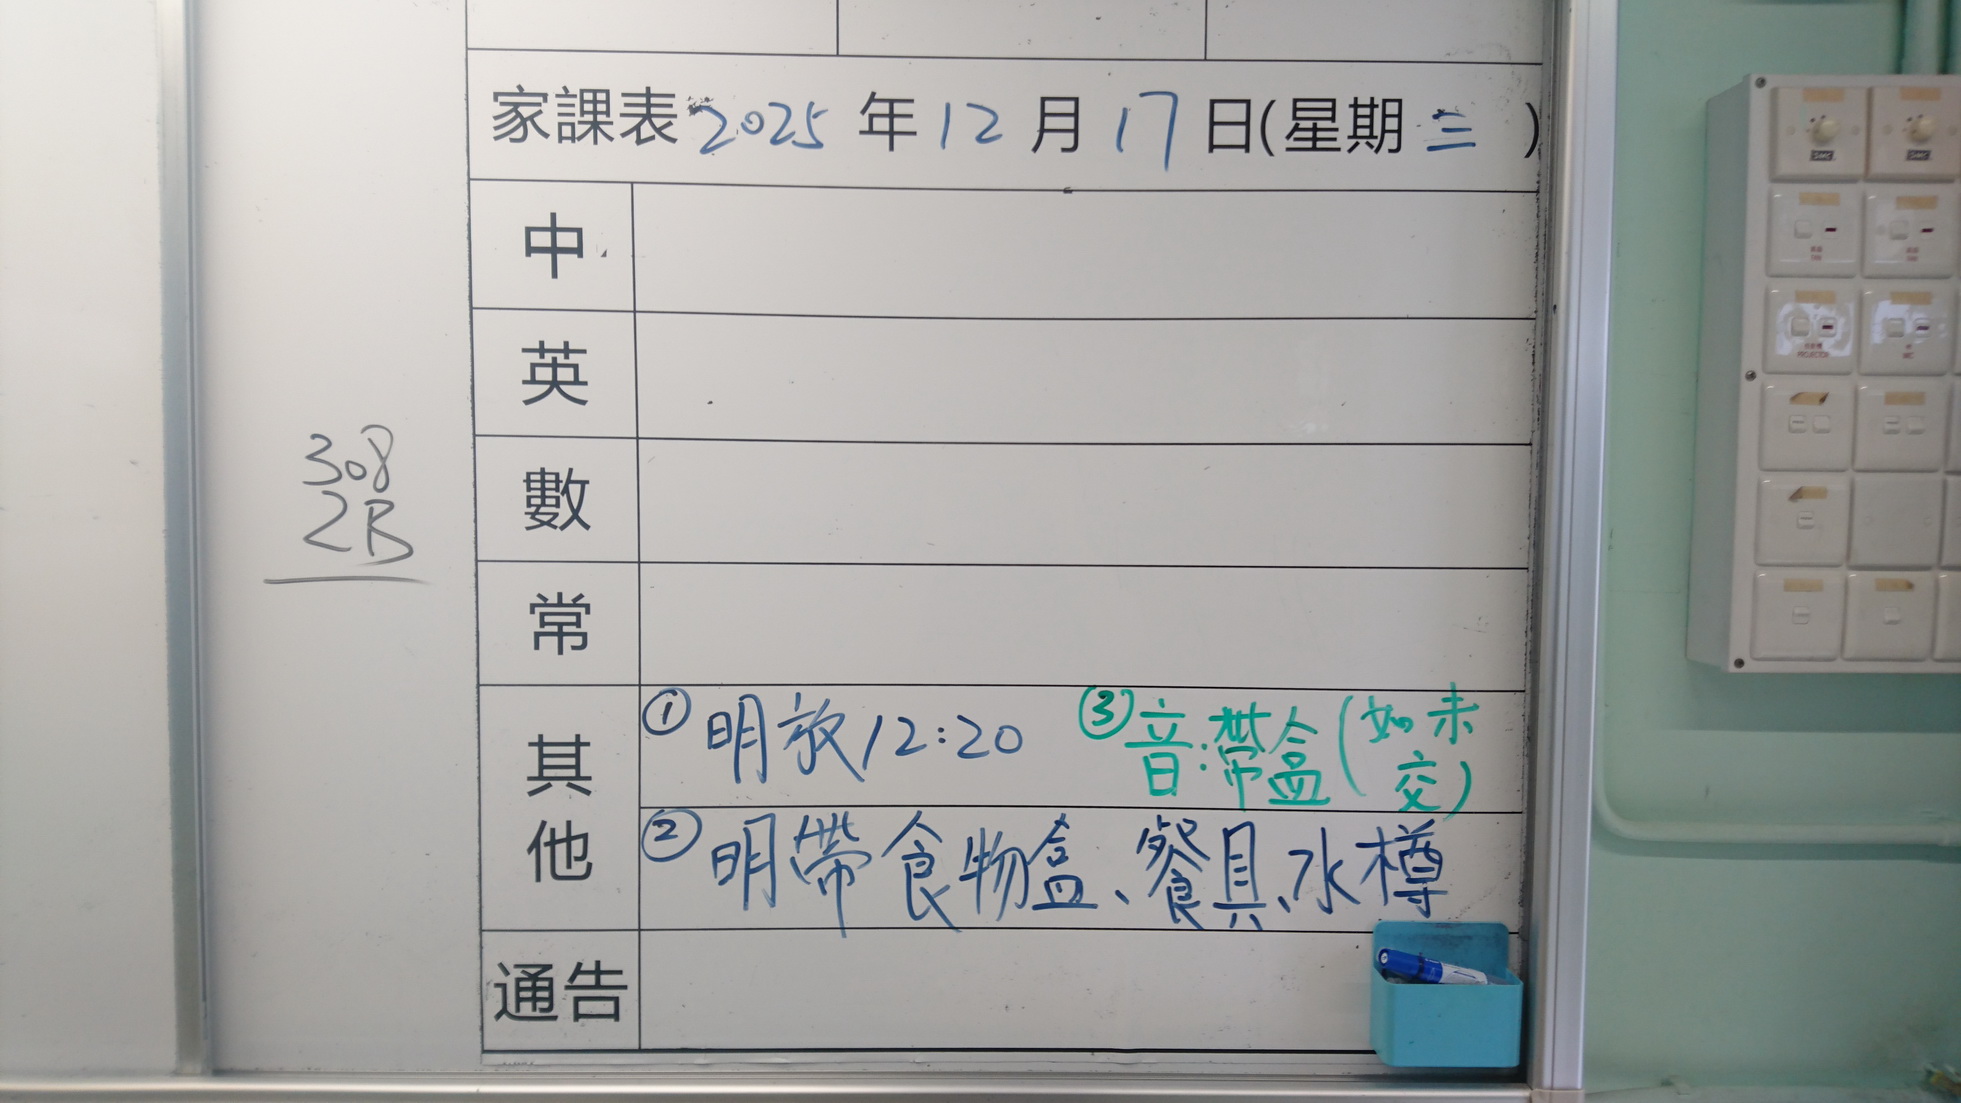 家課表 2025 年 12 月 17 日(星期 三 )
308
2B
中
英
數
常
其他
① 明放12:20
③ 音:帶盒(如未交)
② 明帶食物盒、餐具、水樽
通告